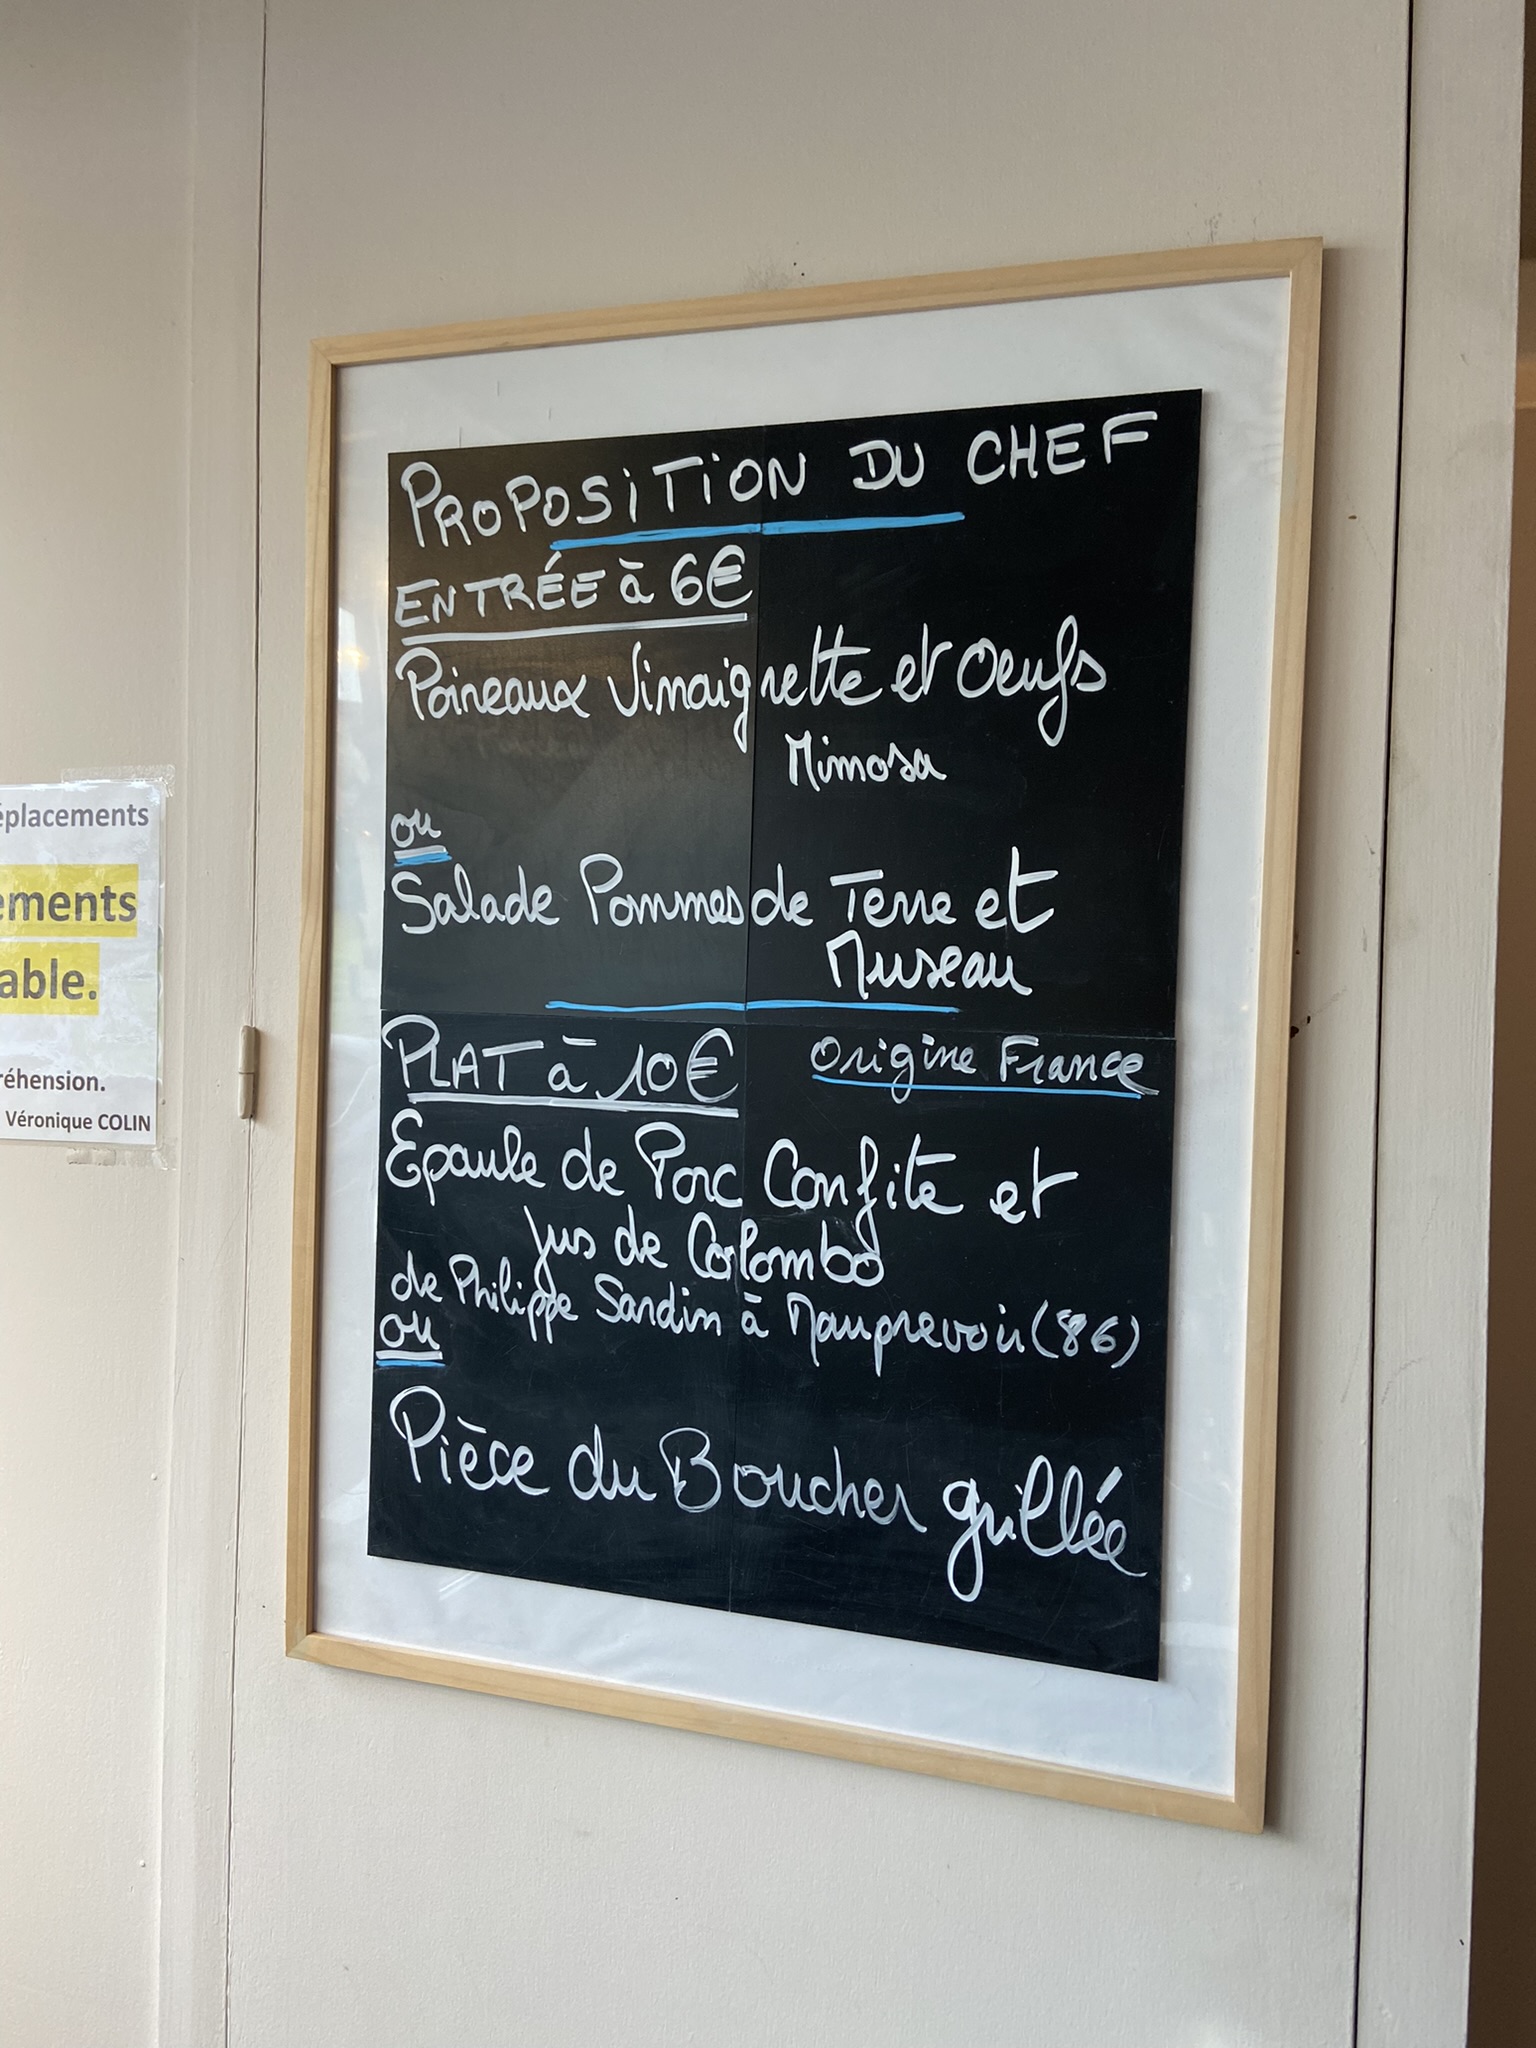 PROPOSITION DU CHEF
ENTRÉE à 6€
Poireaux Vinaigrette et Oeufs
Mimosa
ou
Salade Pommes de Terre et
Museau
PLAT à 10€ Origine France
Epaule de Porc Confite et
jus de Colombo
de Philippe Sardin à Mauprevoir (86)
ou
Pièce du Boucher grillée
éplacements
ements
able.
réhension.
Véronique COLIN